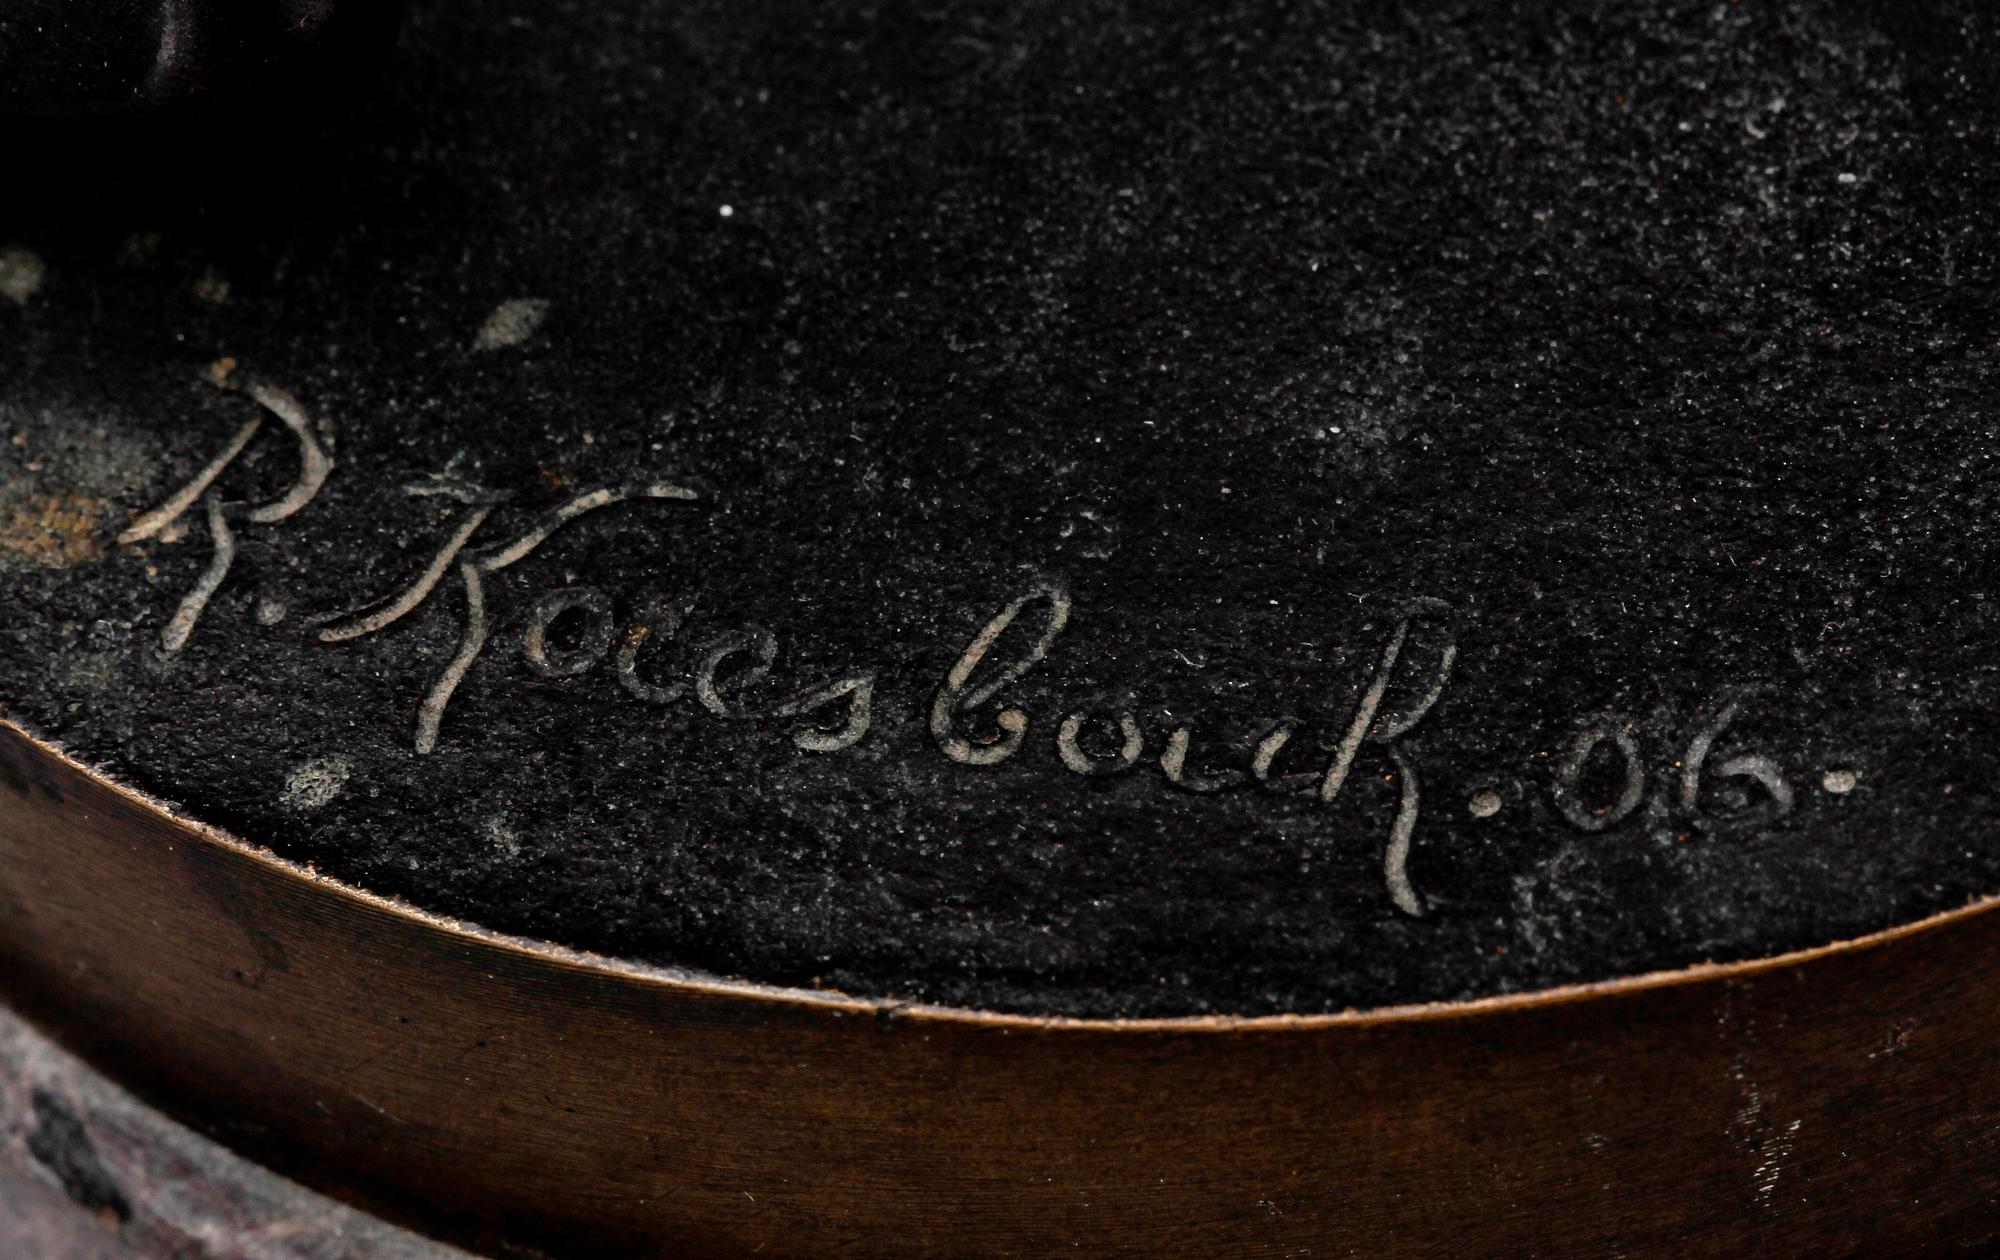 R. Kaesbach. 06.